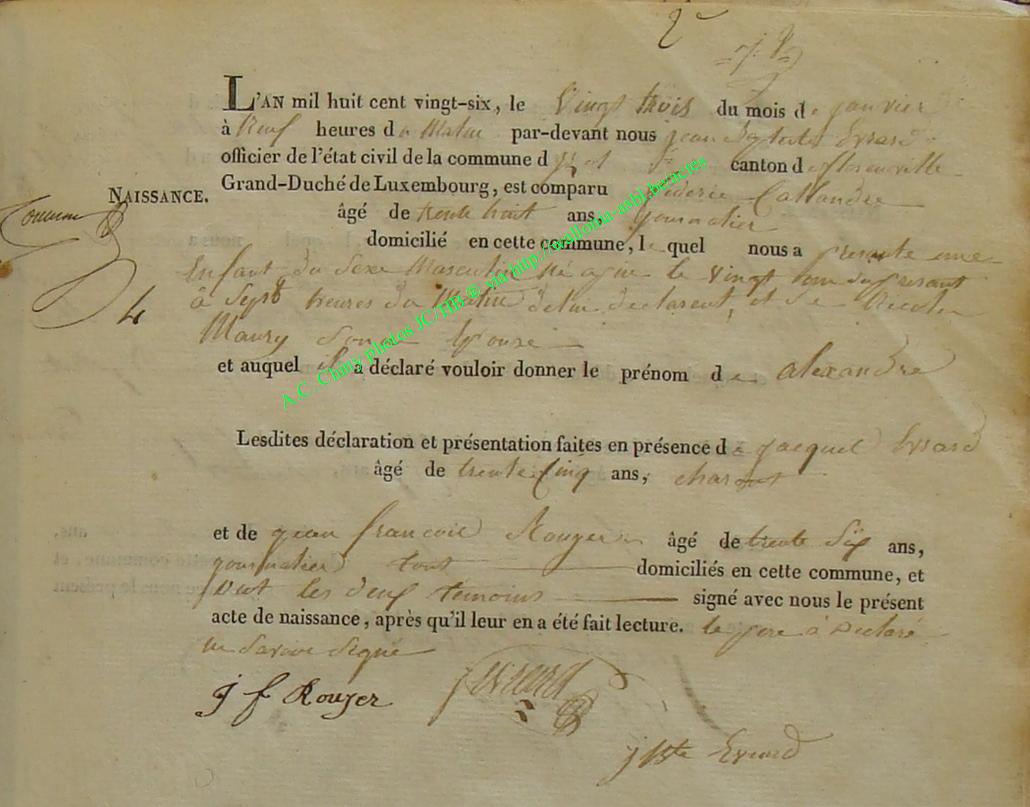 2
L'AN mil huit cent vingt-six, le Vingt trois du mois de janvier
à Neuf heures du Matin par-devant nous jean Bptiste Evrard
officier de l'état civil de la commune d canton de florenville
Grand-Duché de Luxembourg, est comparu
NAISSANCE.
âgé de trente huit ans, journalier
domicilié en cette commune, lequel nous a presenté une
Enfant du Sexe Masculin Né le Vingt du presant
à Sept heures du Matin de lui declarent, et de
Maury Son Epouse
et auquel il a déclaré vouloir donner le prénom de alexandre
A.C. Chiny photos JC/HB © via http://wallonia-asbl.be/actes
Lesdites déclaration et présentation faites en présence de jacque Evrard
âgé de trente Cinq ans,
et de jean francois Rouyer âgé de trente Six ans,
journalier tout domiciliés en cette commune, et
ont les deux temoins signé avec nous le présent
acte de naissance, après qu'il leur en a été fait lecture. le pere à Declaré
ne Savoir Signé
J f Rouyer
j evrard
j Bte Evrard